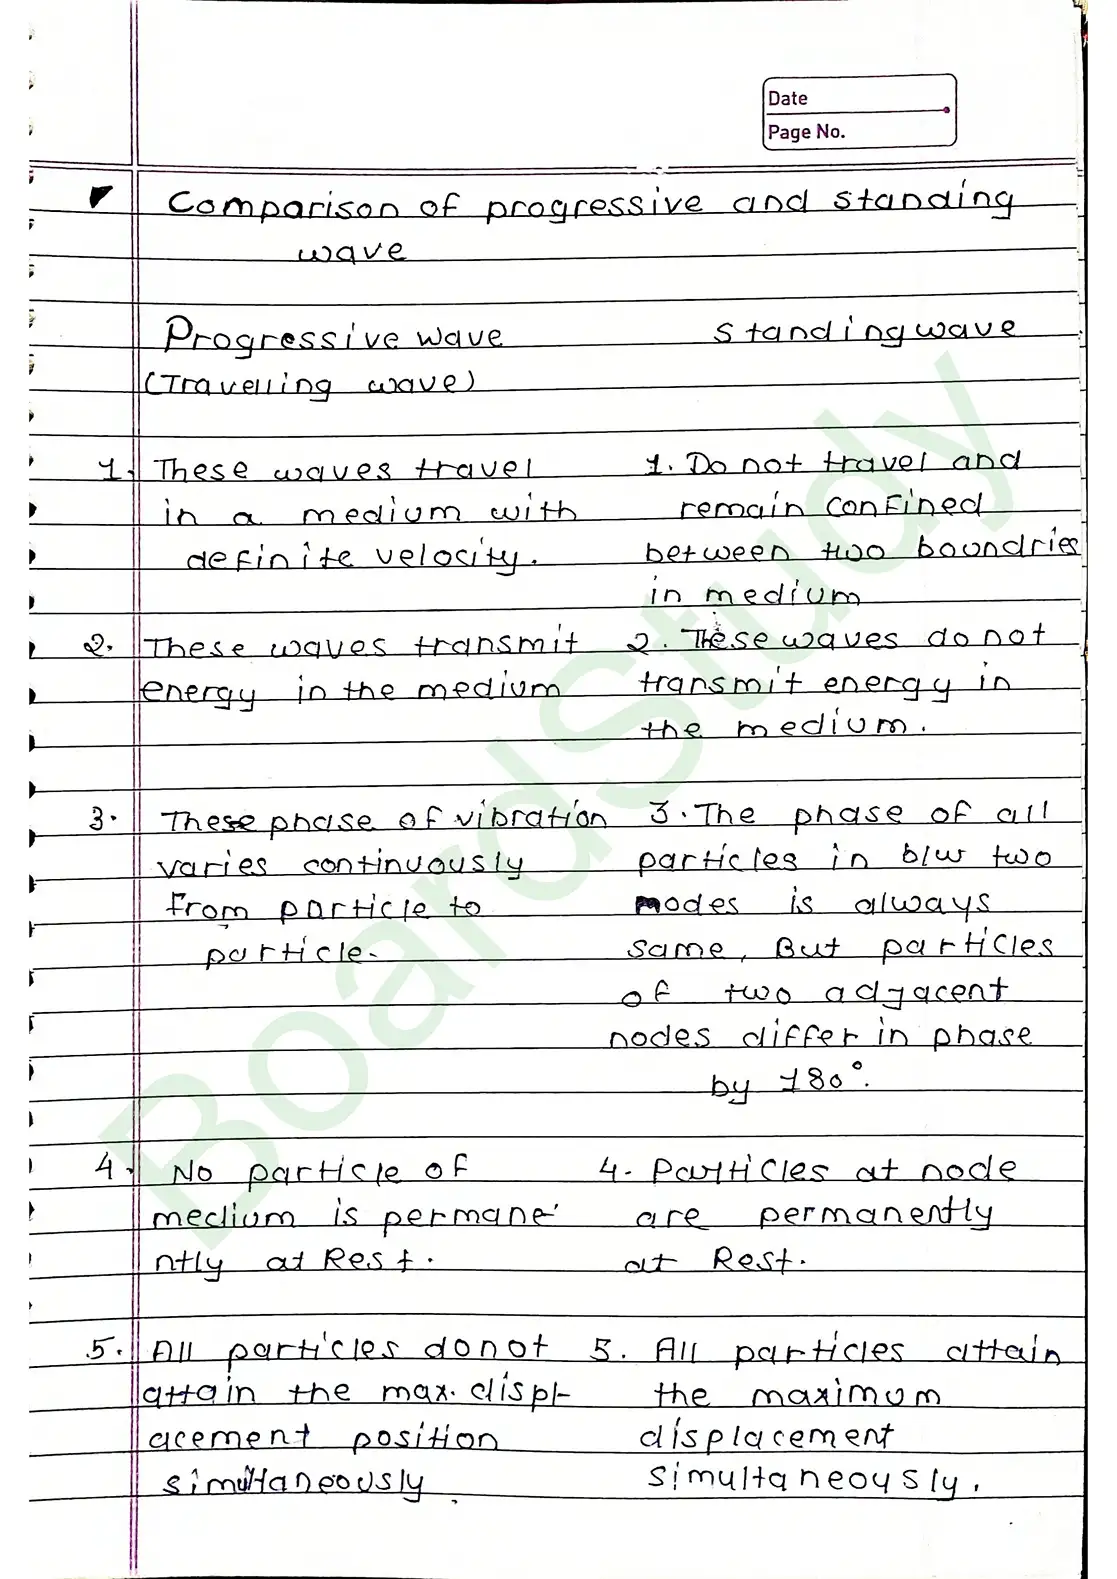 Date
Page No.
Comparison of progressive and standing
wave
Progressive wave
(Travelling wave)
standing wave
1. These waves travel
in a medium with
definite velocity.
1. Do not travel and
remain confined
between two boundries
in medium
2. These waves transmit
energy in the medium
2. These waves do not
transmit energy in
the medium.
3. These phase of vibration
varies continuously
from particle to
particle.
3. The phase of all
particles in b/w two
nodes is always
same, But particles
of two adjacent
nodes differ in phase
by 180°.
4. No particle of
medium is permane-
ntly at Rest.
4. Particles at node
are permanently
at Rest.
5. All particles do not
attain the max. displ-
acement position
simultaneously
5. All particles attain
the maximum
displacement
simultaneously.
BoardStudy